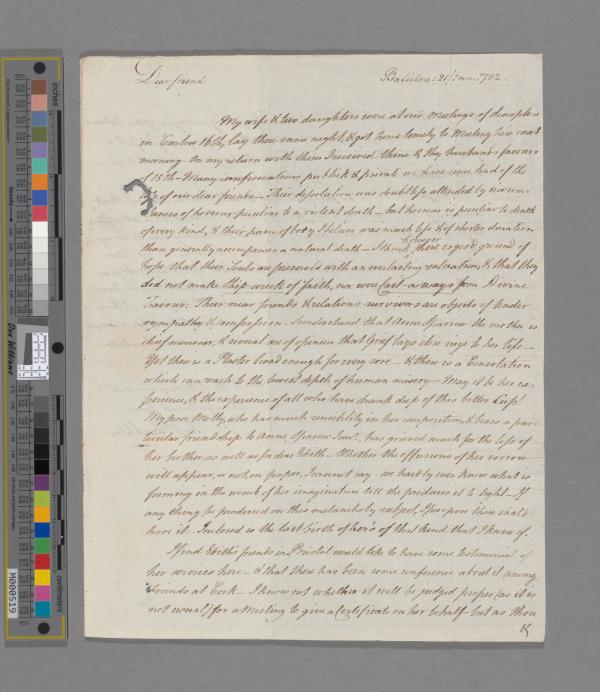 Dear friend
Balitore: 21/2mo. 1782
My wife & two daughters were at our Meetings of discipline
in Carlow 16th, lay there same night, & got home timely to Meeting here next
morning. On my return with them I received thine & thy husband's favours
of 15th - Many confirmations publick & private we have since had of the
loss of our dear friends - Their dissolution was doubtless attended by circum-
stances of horror peculiar to a violent death - but horror is peculiar to death
of every kind, & their pain of body I believe was much less & of shorter duration
than generally accompanies a natural death - I think there is good ground of
however
hope that their Souls are preserved with an everlasting salvation, & that they
did not make Shipwreck of faith, nor were Cast-aways from Divine
Favour. Their near friends & relations survivors are objects of tender
sympathy & compassion - I understand that Anne Sparrow the mother is
chief mourner, & several are of opinion that Grief lays close siege to her Life -
Yet there is a Plaster broad enough for every sore - & there is a Consolation
which can reach to the lowest depth of human misery - May it be her ex-
perience, & the experience of all who have drank deep of this bitter Cup!
My poor Molly, who has much sensibility in her composition, & bears a par-
ticular friendship to Anne Sparrow Junr., has grieved much for the loss of
her brother, as well as for dear Edith - Whether the effusions of her sorrow
will appear, or not, on paper, I cannot say - we hardly ever know what is
forming in the womb of her imagination till the produce is to light - If
any thing be produced on this melancholy subject, I purpose thou shalt
have it - Inclosed is the last birth of hers of that kind that I know of.
I find Edith's friends in Bristol would like to have some testimonial of
her services here - & that there has been some conference about it among
friends at Cork - I know not whether it will be judged proper (as it is
not usual) for a Meeting to give a Certificate on her behalf - but as thou
&
inches
centimeters
Don Williams
M000519